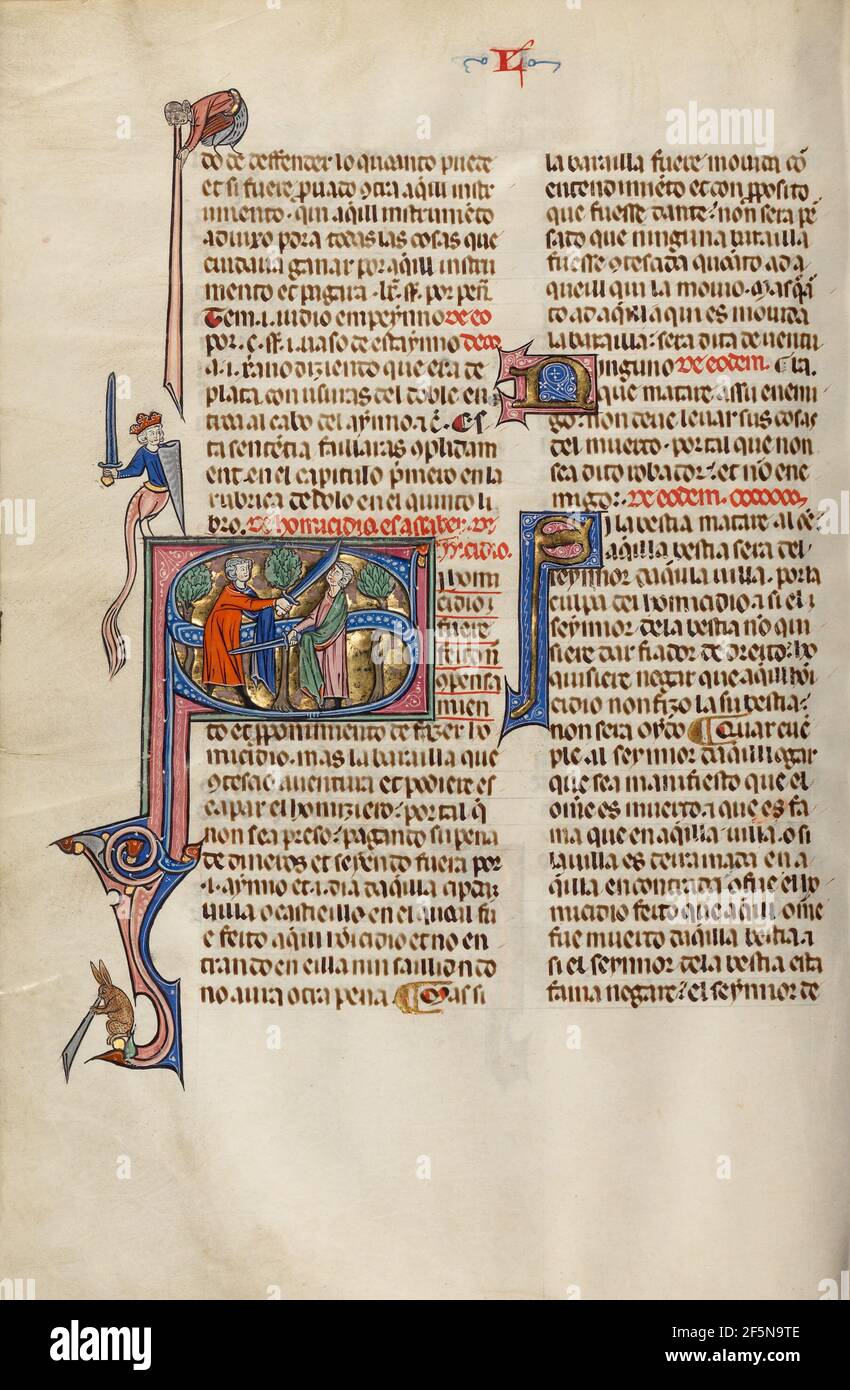 L
do de deffender lo quanto puede
et si fuere puado 9tra aqill instr
umento · qui aqill instrumēto
aduxo pora todas las cosas que
cuidaua ganar por aqill instru
mento et pagara · lx̄. ss̄. por peñ
Tem .i. iudio empeynno de eo
por .c. ss̄. .i. uaso de estaynno dem
a .i. xano diziento que era de
plata con usuras del doble en
troa al cabo del aynno a c̄. Es
ta sentētia faillaras 9plidam
ent en el capitulo pmero en la
rubrica de dolo en el quinto li
bro. De homicidio es a saber de
homicidio.
I homi
cidio
fuere
feito ñ
o pensa
mien
to et pponimiento de fazer ho
micidio · mas la batailla que
9tesce auentura et podiere es
capar el homiziero · por tal q̄
non sea preso · pagando su pena
de dineros et seyendo fuera por
.i. aynno et .i. dia daqilla
uilla o castieillo en el quoal fu
e feito aqill hoīcidio et no en
trando en eilla nin saillindo
no aura otra pena Mas si
la batailla fuere mouida cō
entendimiēto et con pposito
que fuesse dante · non sera pē
sato que ninguna batailla
fuesse 9tesçada quāto ad a
queill qui la mouio · Mas qāt
to ad aqilla qui es mouida
la batailla · sera dita de uentu
Ninguno De eodem. ra.
que matare a su enemi
go · non deue leuar sus cosas
del muerto · por tal que non
sea dito robador · et no ene
migo · De eodem.
Si la bestia matare al
aqilla bestia sera del
seynnor daqilla uilla · por la
culpa del homicidio · a si el
seynnor de la bestia no qui
siere dar fiador de dreito · ho
quisiere negar que aqill hōi
cidio non fizo la su bestia ·
non sera oydo Quar cue
ple al seynnor daqill logar
que sea manifiesto que el
om̄e es muerto · a que es fa
ma que en aqilla uilla · o si
la uilla es derramada en a
qilla encontrada o fue el ho
micidio feito que aqill om̄e
fue muerto daqilla bestia · a
si el seynnor de la bestia esta
fama negare · el seynnor de
alamy
Image ID: 2F5N9TE
www.alamy.com